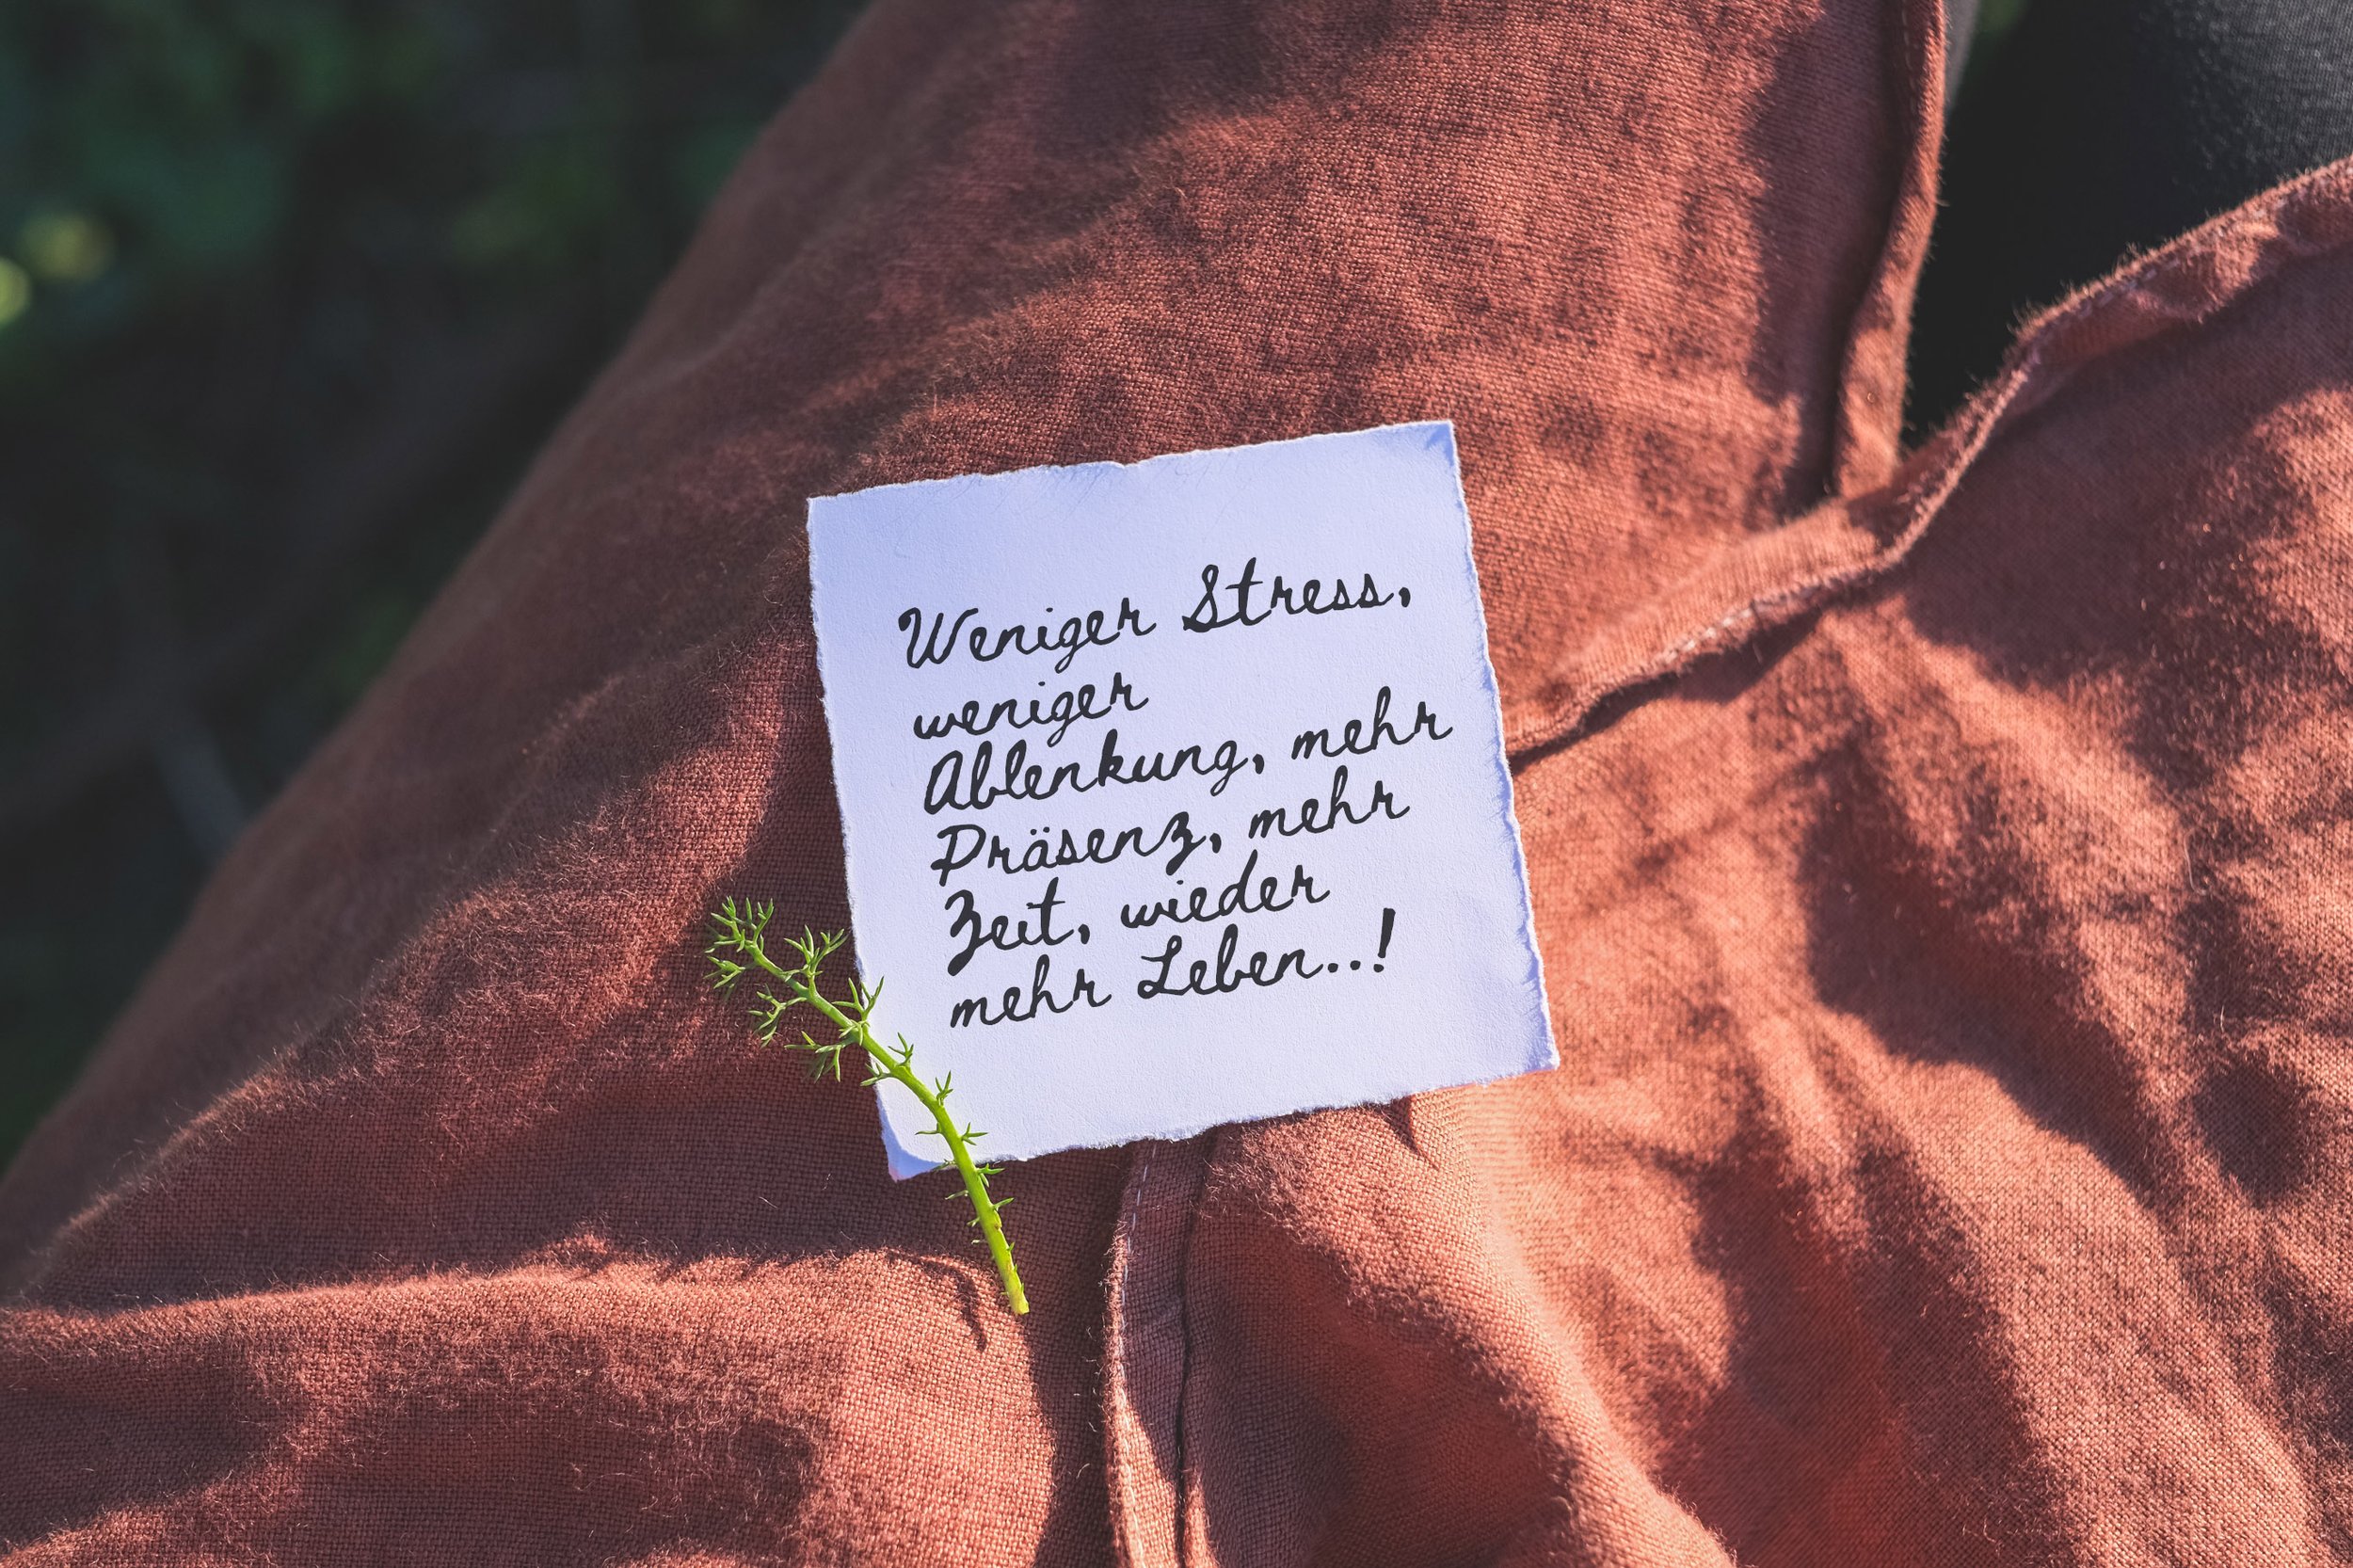 Weniger Stress,
weniger
Ablenkung, mehr
Präsenz, mehr
Zeit, wieder
mehr Leben..!